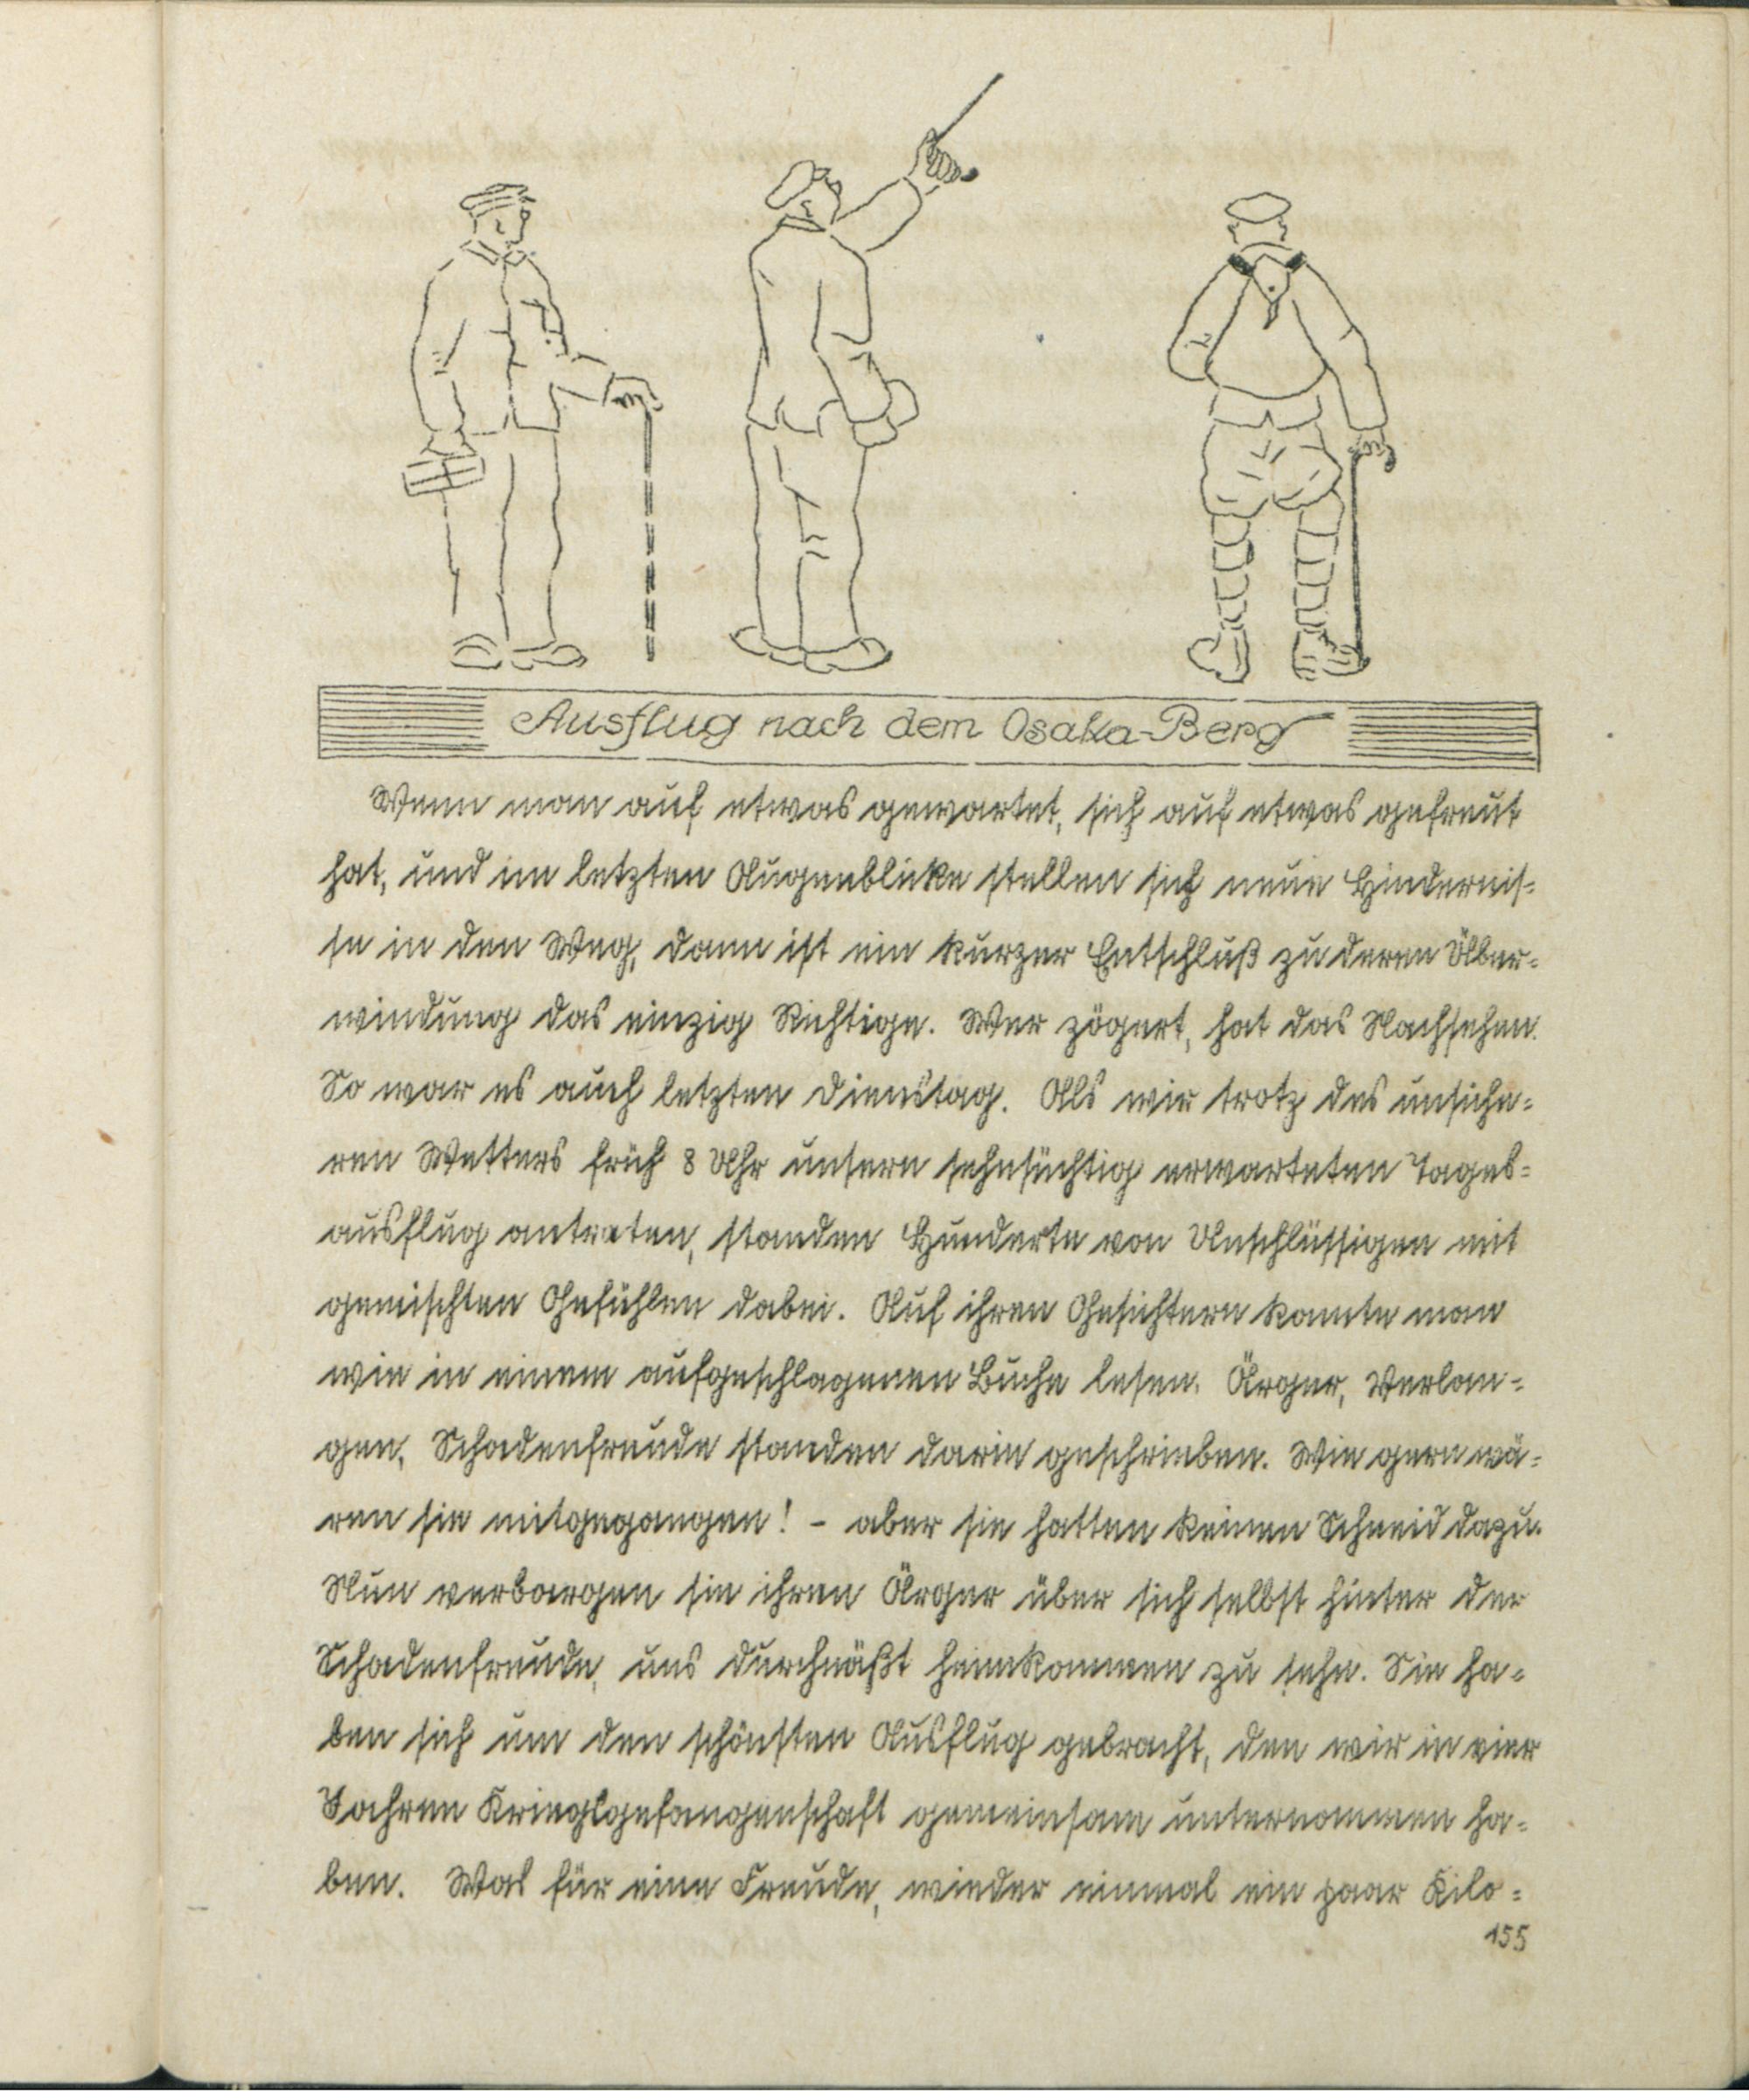 Ausflug nach dem Osaka-Berg
Wenn man auf etwas gewartet, sich auf etwas gefreut
hat, und im letzten Augenblicke stellen sich neue Hindernis-
se in den Weg, dann ist ein kurzer Entschluß zu deren Über-
windung das einzig Richtige. Wer zögert, hat das Nachsehen.
So war es auch letzten Dienstag. Als wir trotz des unsiche-
ren Wetters früh 8 Uhr unsern sehnsüchtig erwarteten Tages-
ausflug antraten, standen Hunderte von Unschlüssigen mit
gemischten Gefühlen dabei. Auf ihren Gesichtern konnte man
wie in einem aufgeschlagenen Buche lesen. Ärger, Verlan-
gen, Schadenfreude standen darin geschrieben. Wie gern wä-
ren sie mitgegangen! - aber sie hatten keinen Schneid dazu.
Nun verbargen sie ihren Ärger über sich selbst hinter der
Schadenfreude, uns durchnäßt heimkommen zu sehn. Sie ha-
ben sich um den schönsten Ausflug gebracht, den wir in vier
Jahren Kriegsgefangenschaft gemeinsam unternommen ha-
ben. Was für eine Freude, wieder einmal ein paar Kilo-
155